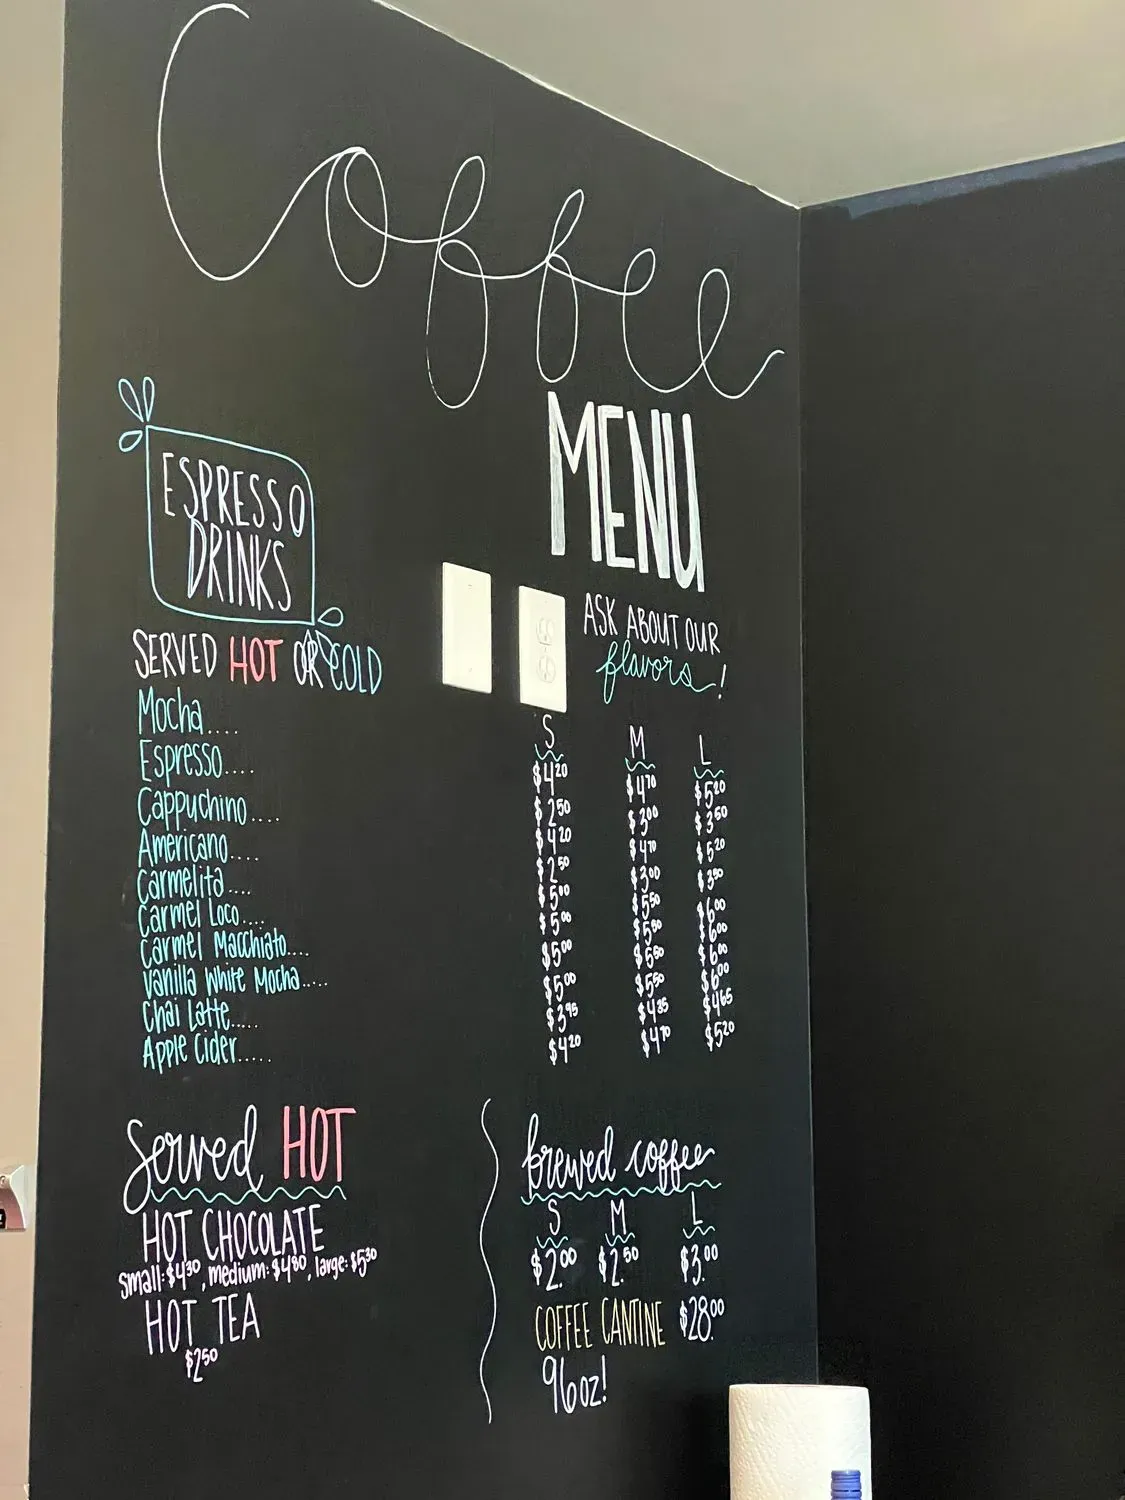 Coffee
MENU
ESPRESSO
DRINKS
SERVED HOT OR COLD
ASK ABOUT OUR
flavors!
S M L
Mocha.... $4.20 $4.70 $5.20
Espresso.... $2.50 $3.00 $3.50
Cappuchino.... $4.20 $4.70 $5.20
Americano.... $2.50 $3.00 $3.50
Carmelita.... $5.00 $5.50 $6.00
Carmel Loco.... $5.00 $5.50 $6.00
Carmel Macchiato.... $5.00 $5.50 $6.00
Vanilla White Mocha..... $5.00 $5.50 $6.00
Chai Latte..... $3.95 $4.35 $4.65
Apple Cider..... $4.20 $4.70 $5.20
Served HOT
HOT CHOCOLATE
small: $4.30, medium: $4.80, large: $5.30
HOT TEA
$2.50
brewed coffee
S M L
$2.00 $2.50 $3.00
COFFEE CANTINE $28.00
96oz!